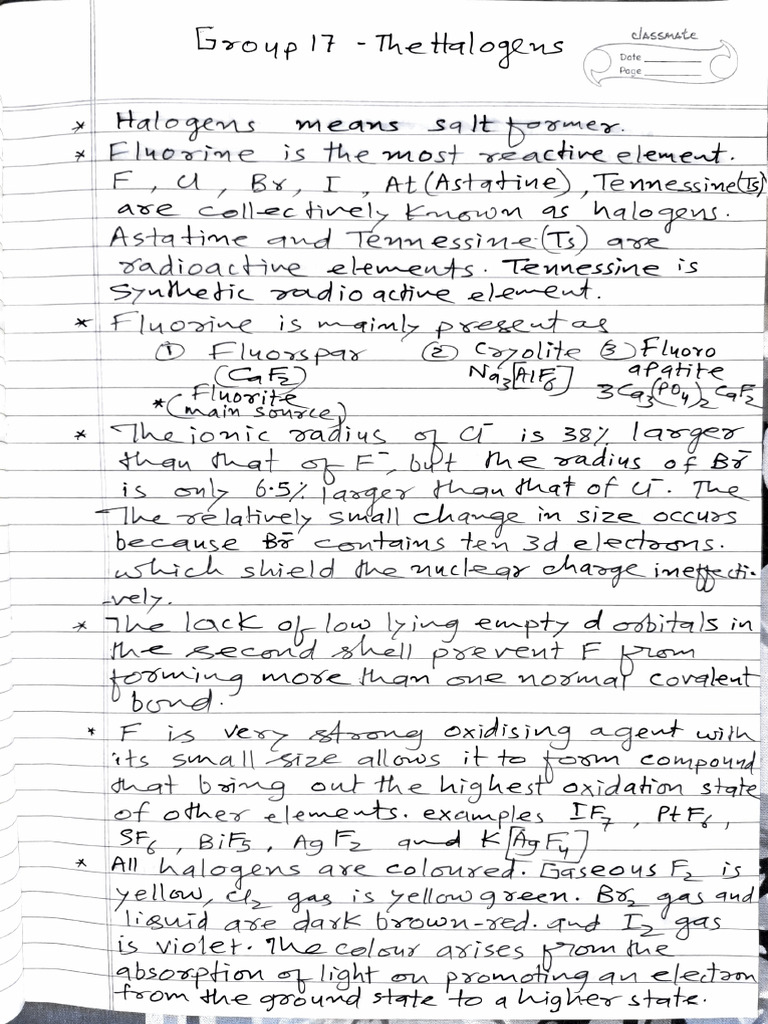 Group 17 - The Halogens
classmate
Date
Page
* Halogens means salt former.
* Fluorine is the most reactive element.
F, Cl, Br, I, At (Astatine), Tennessine (Ts)
are collectively known as halogens.
Astatine and Tennessine (Ts) are
radioactive elements. Tennessine is
synthetic radioactive element.
* Fluorine is mainly present as
① Fluorspar ② Cryolite ③ Fluoro
(CaF2) Na3[AlF6] apatite
Fluorite 3Ca3(PO4)2CaF2
*(main source)
* The ionic radius of Cl⁻ is 38% larger
than that of F⁻, but the radius of Br⁻
is only 6.5% larger than that of Cl⁻. The
The relatively small change in size occurs
because Br⁻ contains ten 3d electrons.
which shield the nuclear charge ineffecti-
-vely.
* The lack of low lying empty d orbitals in
the second shell prevent F from
forming more than one normal covalent
bond.
* F is very strong oxidising agent with
its small size allows it to form compound
that bring out the highest oxidation state
of other elements. examples IF7, PtF6,
SF6, BiF5, AgF2 and K[AgF4]
* All halogens are coloured. Gaseous F2 is
yellow, Cl2 gas is yellow green. Br2 gas and
liquid are dark brown-red. and I2 gas
is violet. The colour arises from the
absorption of light on promoting an electron
from the ground state to a higher state.